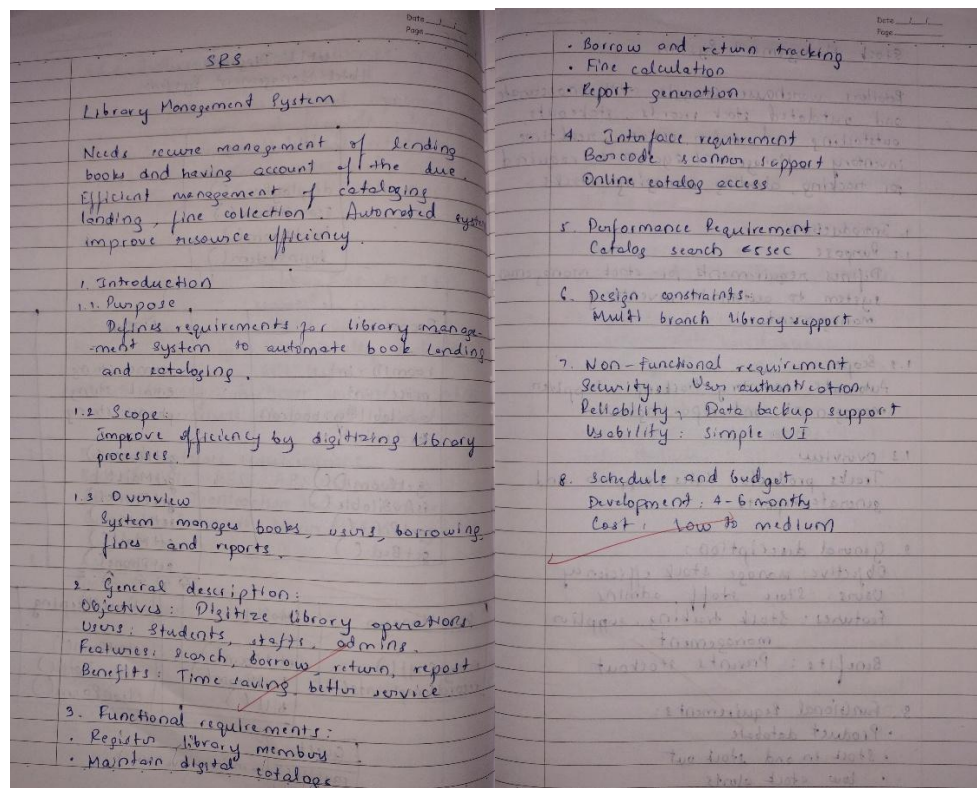 Date
Page
SRS
Library Management System
Needs secure management of lending
books and having account of the due.
Efficient management of cataloging
landing, fine collection. Automated system
improve resource efficiency.
1. Introduction
1.1. Purpose
Defines requirements for library manage-
-ment system to automate book landing
and cataloging.
1.2 Scope:
improve efficiency by digitizing library
processes.
1.3 Overview
System manages books, users, borrowing,
fines and reports.
2. General description:
Objectives: Digitize library operations.
Users: Students, staffs, admins.
Features: search, borrow, return, repost
Benefits: Time saving, better service
3. Functional requirements:
• Register library members
• Maintain digital catalogs
Date
Page
• Borrow and return tracking
• Fine calculation
• Report generation
4. Interface requirement
Barcode scanner support
Online catalog access
5. Performance Requirement:
Catalog search <5 sec
6. Design constraints
Multi branch library support
7. Non-functional requirement
Security: User authentication
Reliability, Data backup support
Usability: simple UI
8. Schedule and budget
Development: 4-6 monthly
Cost: low to medium